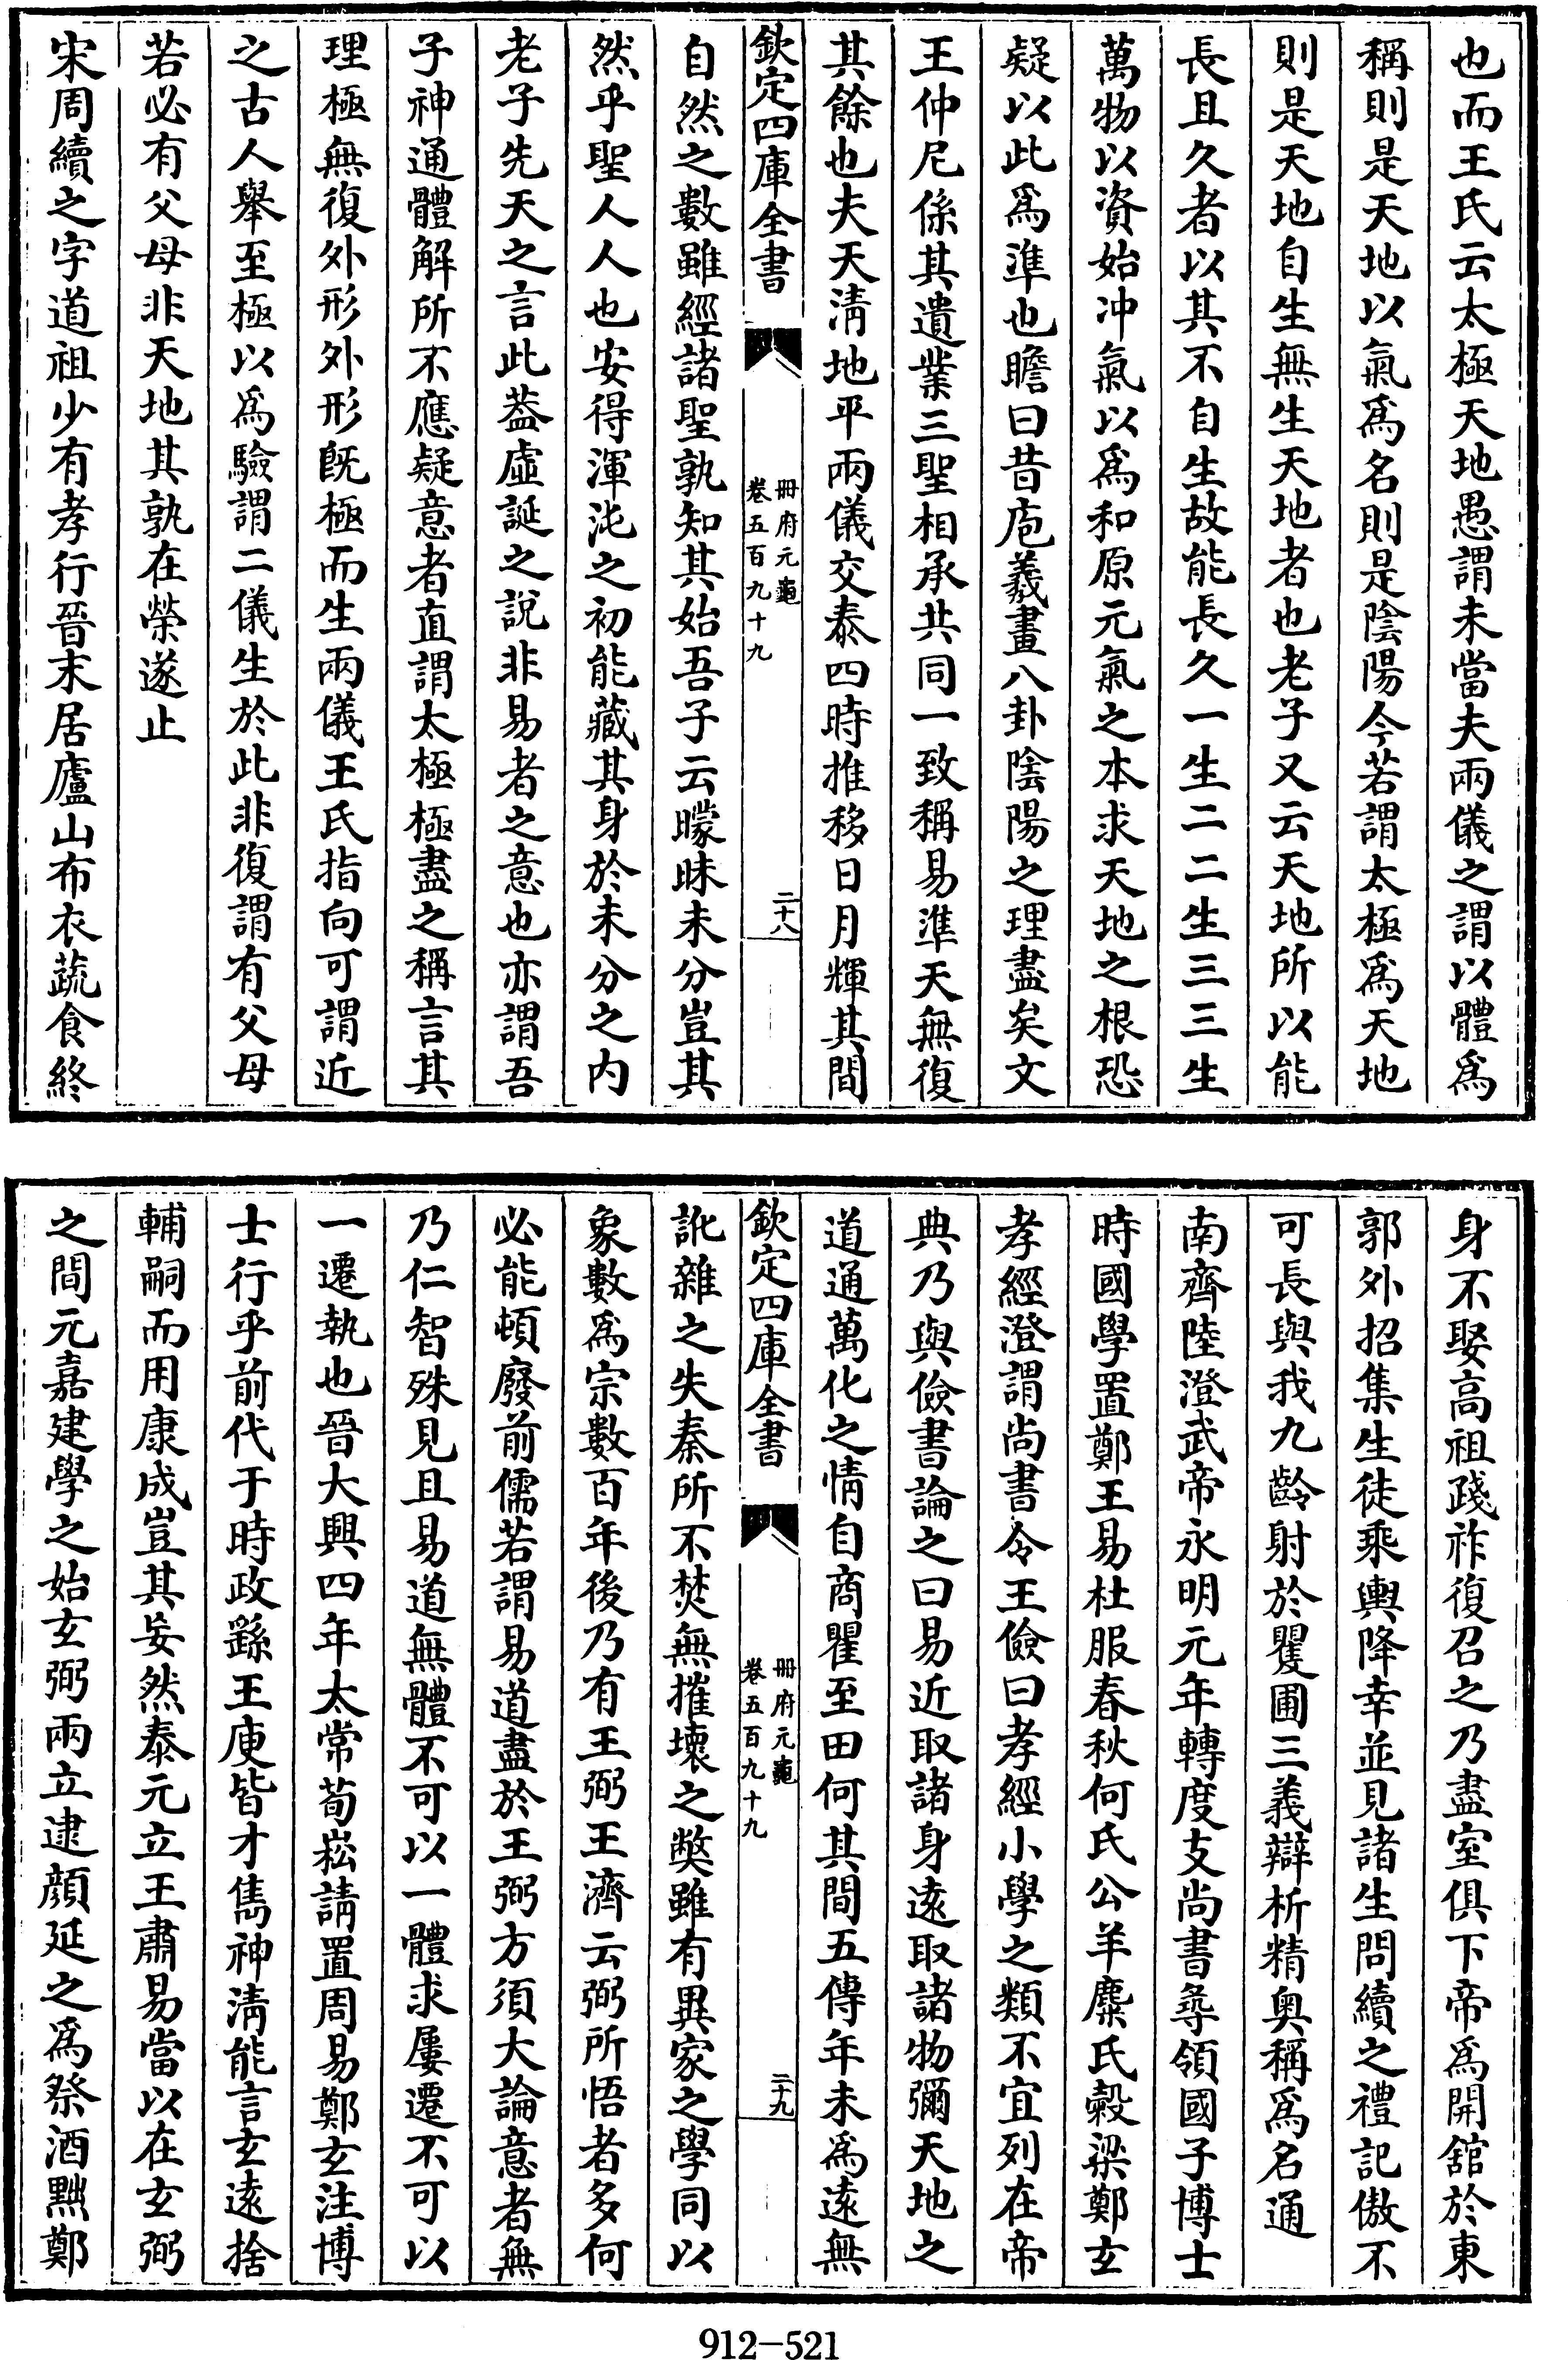 也而王氏云太極天地愚謂未當夫兩儀之謂以體爲
稱則是天地以氣爲名則是陰陽今若謂太極爲天地
則是天地自生無生天地者也老子又云天地所以能
長且久者以其不自生故能長久一生二二生三三生
萬物以資始沖氣以爲和原元氣之本求天地之根恐
疑以此爲準也瞻曰昔庖羲畫八卦陰陽之理盡矣文
王仲尼係其遺業三聖相承共同一致稱易準天無復
其餘也夫天清地平兩儀交泰四時推移日月輝其間
欽定四庫全書
冊府元龜
卷五百九十九
二十八
自然之數雖經諸聖孰知其始吾子云矇昧未分豈其
然乎聖人人也安得渾沌之初能藏其身於未分之内
老子先天之言此葢虛誕之說非易者之意也亦謂吾
子神通體解所不應疑意者直謂太極極盡之稱言其
理極無復外形外形既極而生兩儀王氏指向可謂近
之古人舉至極以爲驗謂二儀生於此非復謂有父母
若必有父母非天地其孰在榮遂止
宋周續之字道祖少有孝行晉末居廬山布衣蔬食終
身不娶高祖踐祚復召之乃盡室俱下帝爲開舘於東
郭外招集生徒乘輿降幸並見諸生問續之禮記傲不
可長與我九齡射於矍圃三義辯析精奥稱爲名通
南齊陸澄武帝永明元年轉度支尚書尋領國子博士
時國學置鄭王易杜服春秋何氏公羊麋氏榖梁鄭玄
孝經澄謂尚書令王儉曰孝經小學之類不宜列在帝
典乃與儉書論之曰易近取諸身遠取諸物彌天地之
道通萬化之情自商瞿至田何其間五傳年未爲遠無
欽定四庫全書
冊府元龜
卷五百九十九
二十九
訛雜之失秦所不焚無摧壞之獘雖有異家之學同以
象數爲宗數百年後乃有王弼王濟云弼所悟者多何
必能頓廢前儒若謂易道盡於王弼方須大論意者無
乃仁智殊見且易道無體不可以一體求屢遷不可以
一遷執也晉大興四年太常荀崧請置周易鄭玄注博
士行乎前代于時政繇王庾皆才雋神清能言玄遠捨
輔嗣而用康成豈其妄然泰元立王肅易當以在玄弼
之間元嘉建學之始玄弼兩立逮顔延之爲祭酒黜鄭
912-521